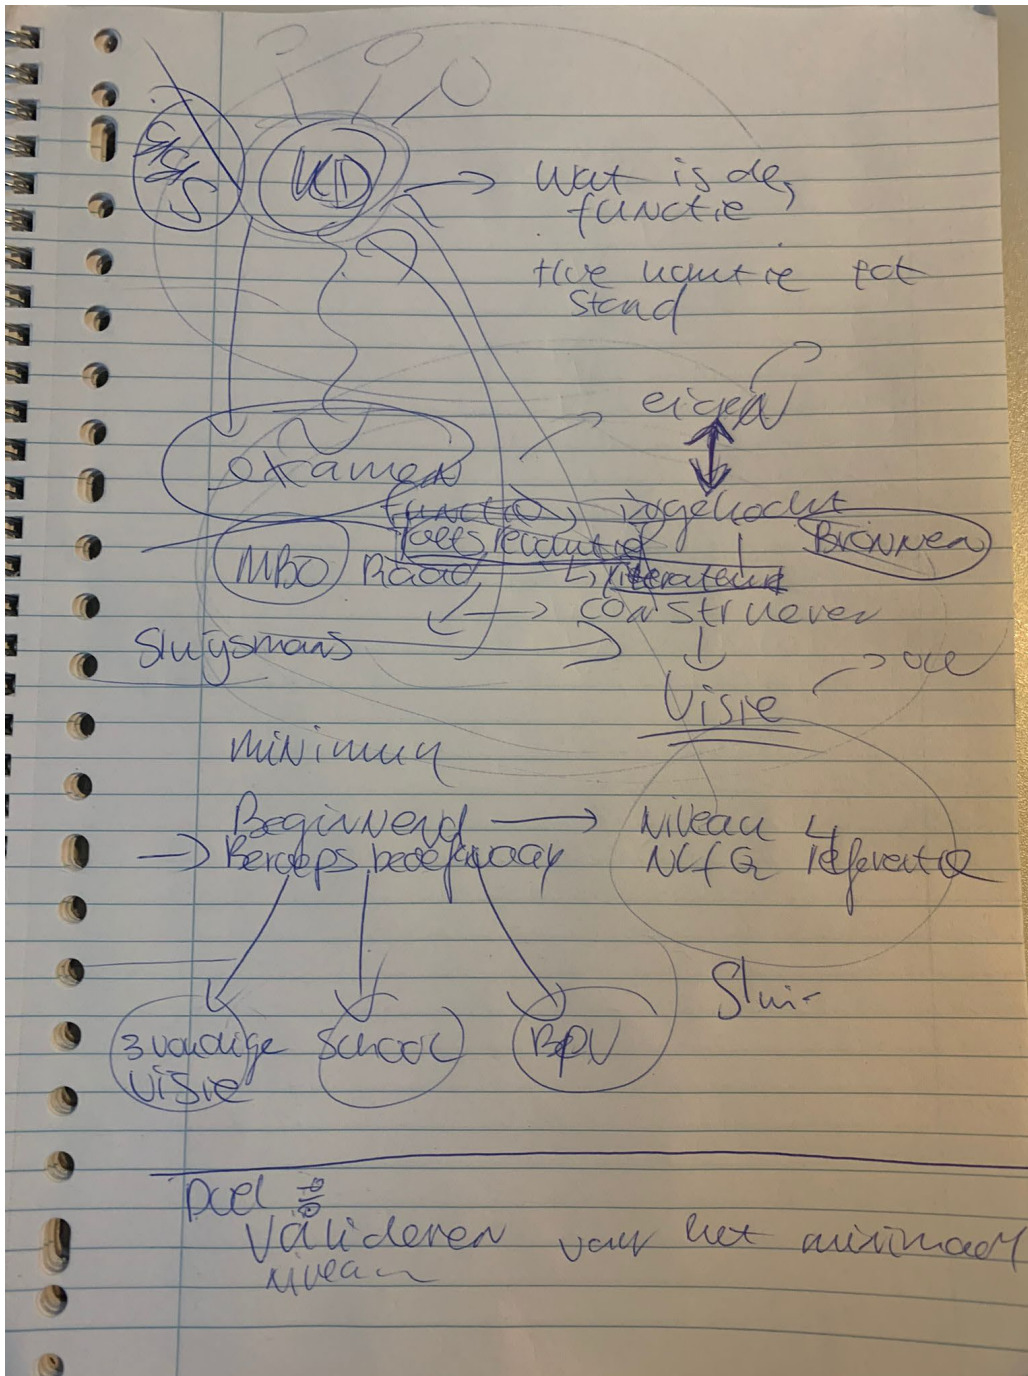 SBB
KD
Wat is de
functie
Hoe komt ie tot
stand
eigen
examen
functie, ingekocht
Bronnen
MBO Raad literatuur
construeren
Sluijsmans
Visie
minimum
Beginnend
Niveau 4
NLQF referentie
3 voudige
visie
School
BPV
Slui-
Doel
Valideren van het minimaal
niveau